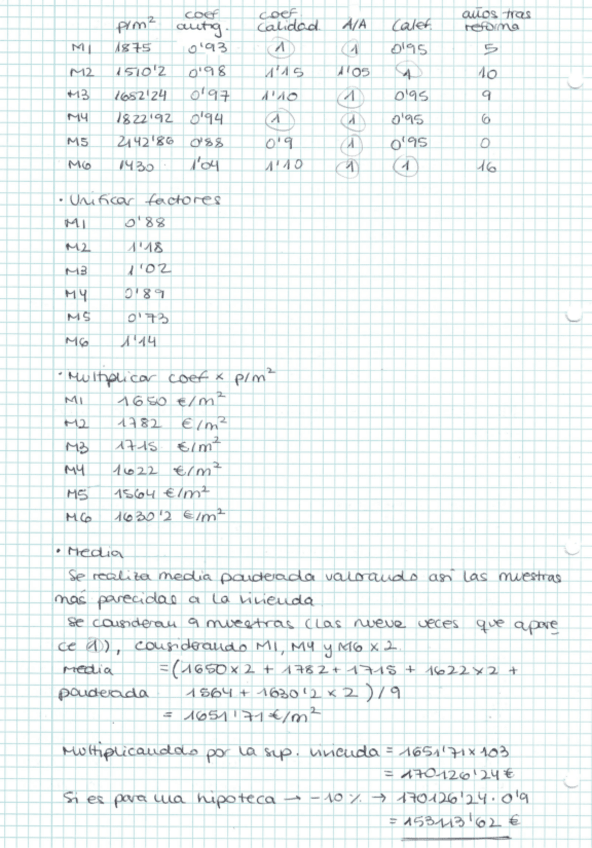 p/m² coef antig. coef calidad A/A Calef. años tras reforma
M1 1875 0'93 1 1 0'95 5
M2 1510'2 0'98 1'15 1'05 1 10
M3 1652'24 0'97 1'10 1 0'95 9
M4 1822'92 0'94 1 1 0'95 6
M5 2142'86 0'88 0'9 1 0'95 0
M6 1430 1'04 1'10 1 1 16
· Unificar factores
M1 0'88
M2 1'18
M3 1'02
M4 0'89
M5 0'73
M6 1'14
· Multiplicar coef x p/m²
M1 1650 €/m²
M2 1782 €/m²
M3 1715 €/m²
M4 1622 €/m²
M5 1564 €/m²
M6 1630'2 €/m²
· Media
Se realiza media ponderada valorando así las muestras
más parecidas a la vivienda
Se consideran 9 muestras (las nueve veces que apare
ce 1), considerando M1, M4 y M6 x 2.
Media = (1650 x 2 + 1782 + 1715 + 1622 x 2 +
ponderada 1564 + 1630'2 x 2) / 9
= 1651'71 €/m²
Multiplicandolo por la sup. vivienda = 1651'71 x 103
= 170126'24 €
Si es para una hipoteca → -10% → 170126'24 · 0'9
= 153113'62 €